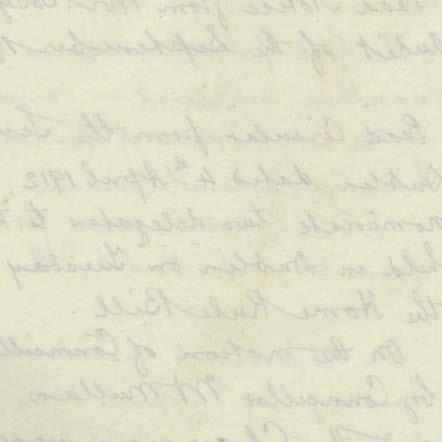 Read Notice from Mr
Audit of the September
Read Circular from the
Dublin, dated 4th April 1912
nominate two delegates to
held in Dublin on Tuesday
the Home Rule Bill
On the motion of Councill
by Councillor McMullan